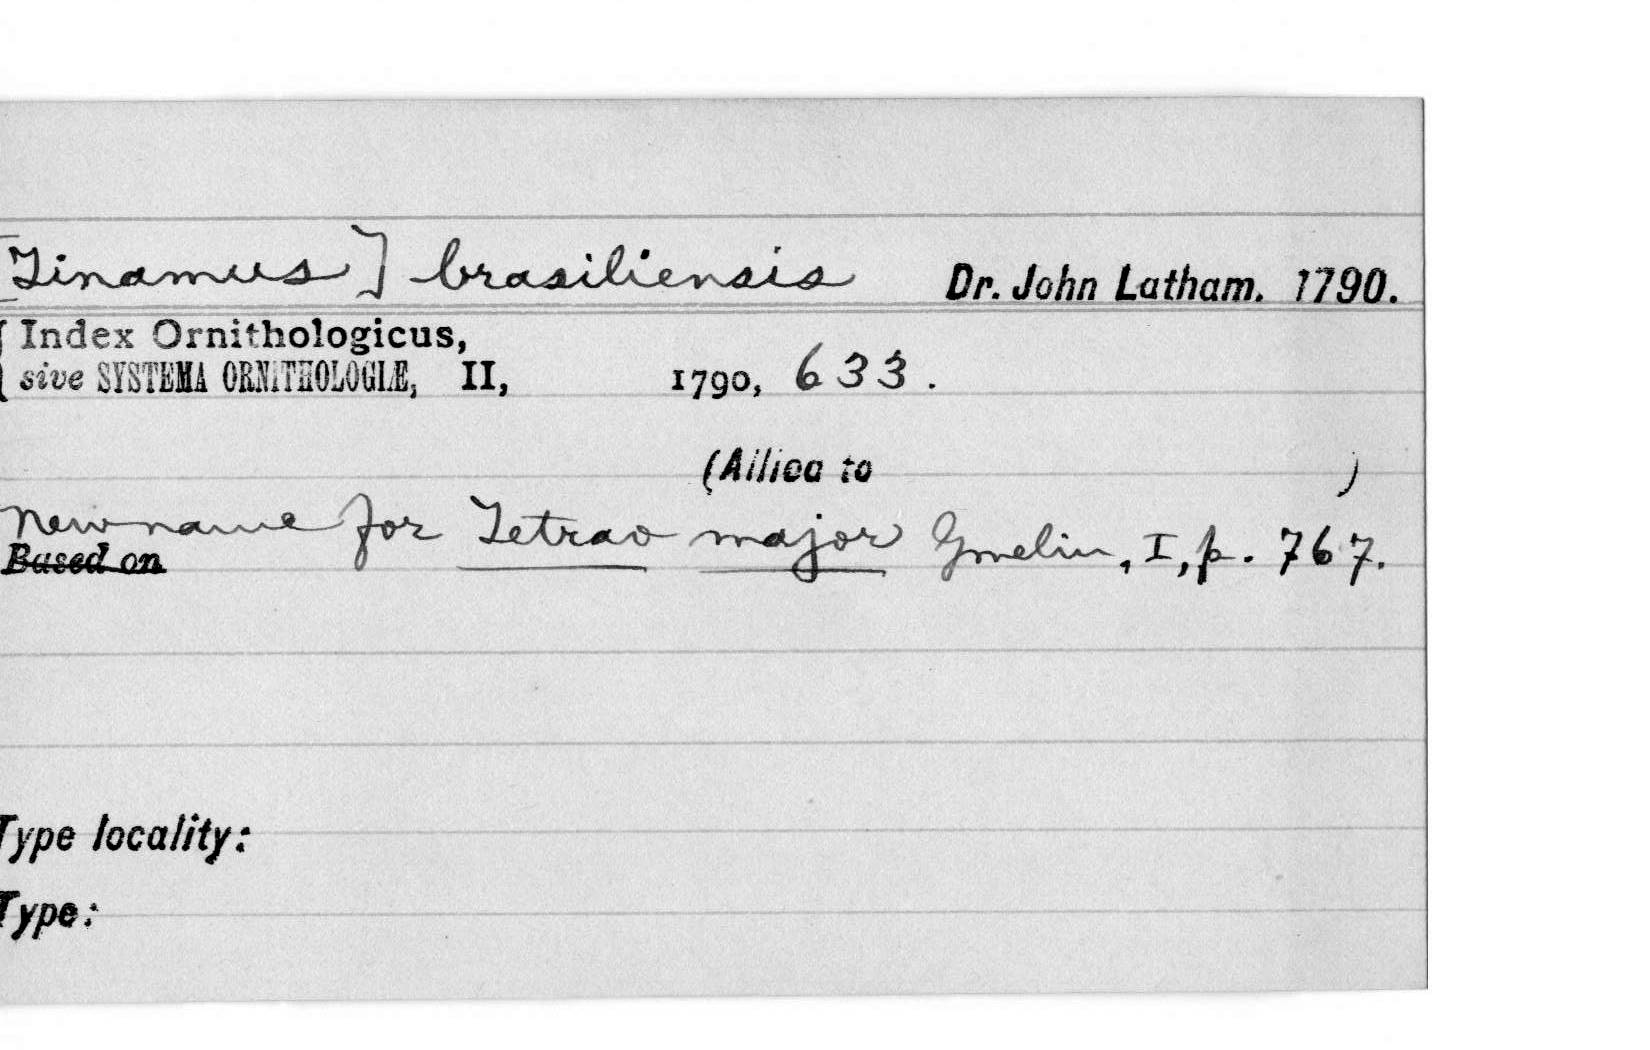 [Tinamus] brasiliensis Dr. John Latham. 1790.
Index Ornithologicus,
sive SYSTEMA ORNITHOLOGIÆ, II, 1790, 633.
(Allied to )
New name for Tetrao major Gmelin, I, p. 767.
Based on
Type locality:
Type: